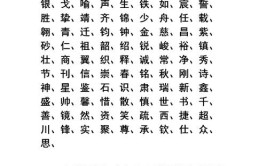 银、戈、喻、声、生、铁、如、宸、誓、
胜、挚、靖、齐、锦、少、舟、任、载、
翱、青、迁、钧、钟、金、慈、昌、紫、
砂、仁、祖、韶、绍、锐、峻、裕、镇、
壮、商、翼、织、释、诚、常、净、秀、
节、刊、信、崇、春、铭、秋、刚、诗、
神、星、鉴、石、识、肃、瑞、新、鑫、
盛、帅、馨、惜、散、慎、世、书、千、
善、镜、然、资、笑、疏、西、捷、超、
川、锋、实、聚、尊、承、钦、仕、众、
思、